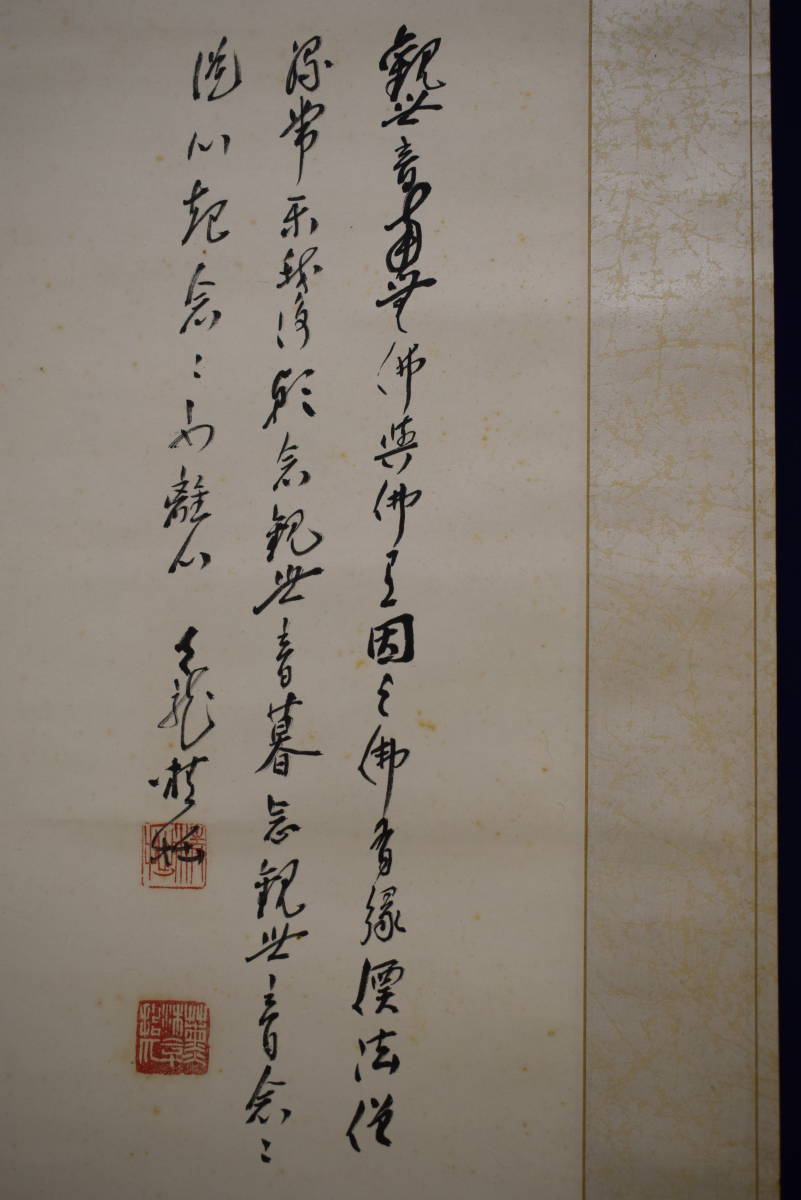 觀世音南無佛與佛有因与佛有縁佛法僧
縁常樂我浄朝念觀世音暮念觀世音念〻
従心起念〻不離心 天龍